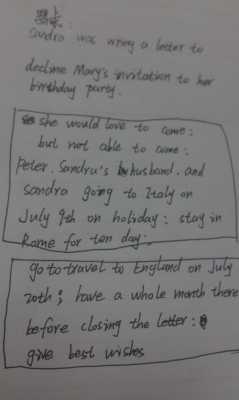 Sandra was wring a letter to
decline Mary's invitation to her
birthday party.
she would love to come:
but not able to come:
Peter. Sandra's husband. and
Sandra going to Italy on
July 9th on holiday: stay in
Rome for ten day.
go to travel to England on July
20th; have a whole month there
before closing the letter:
give best wishes